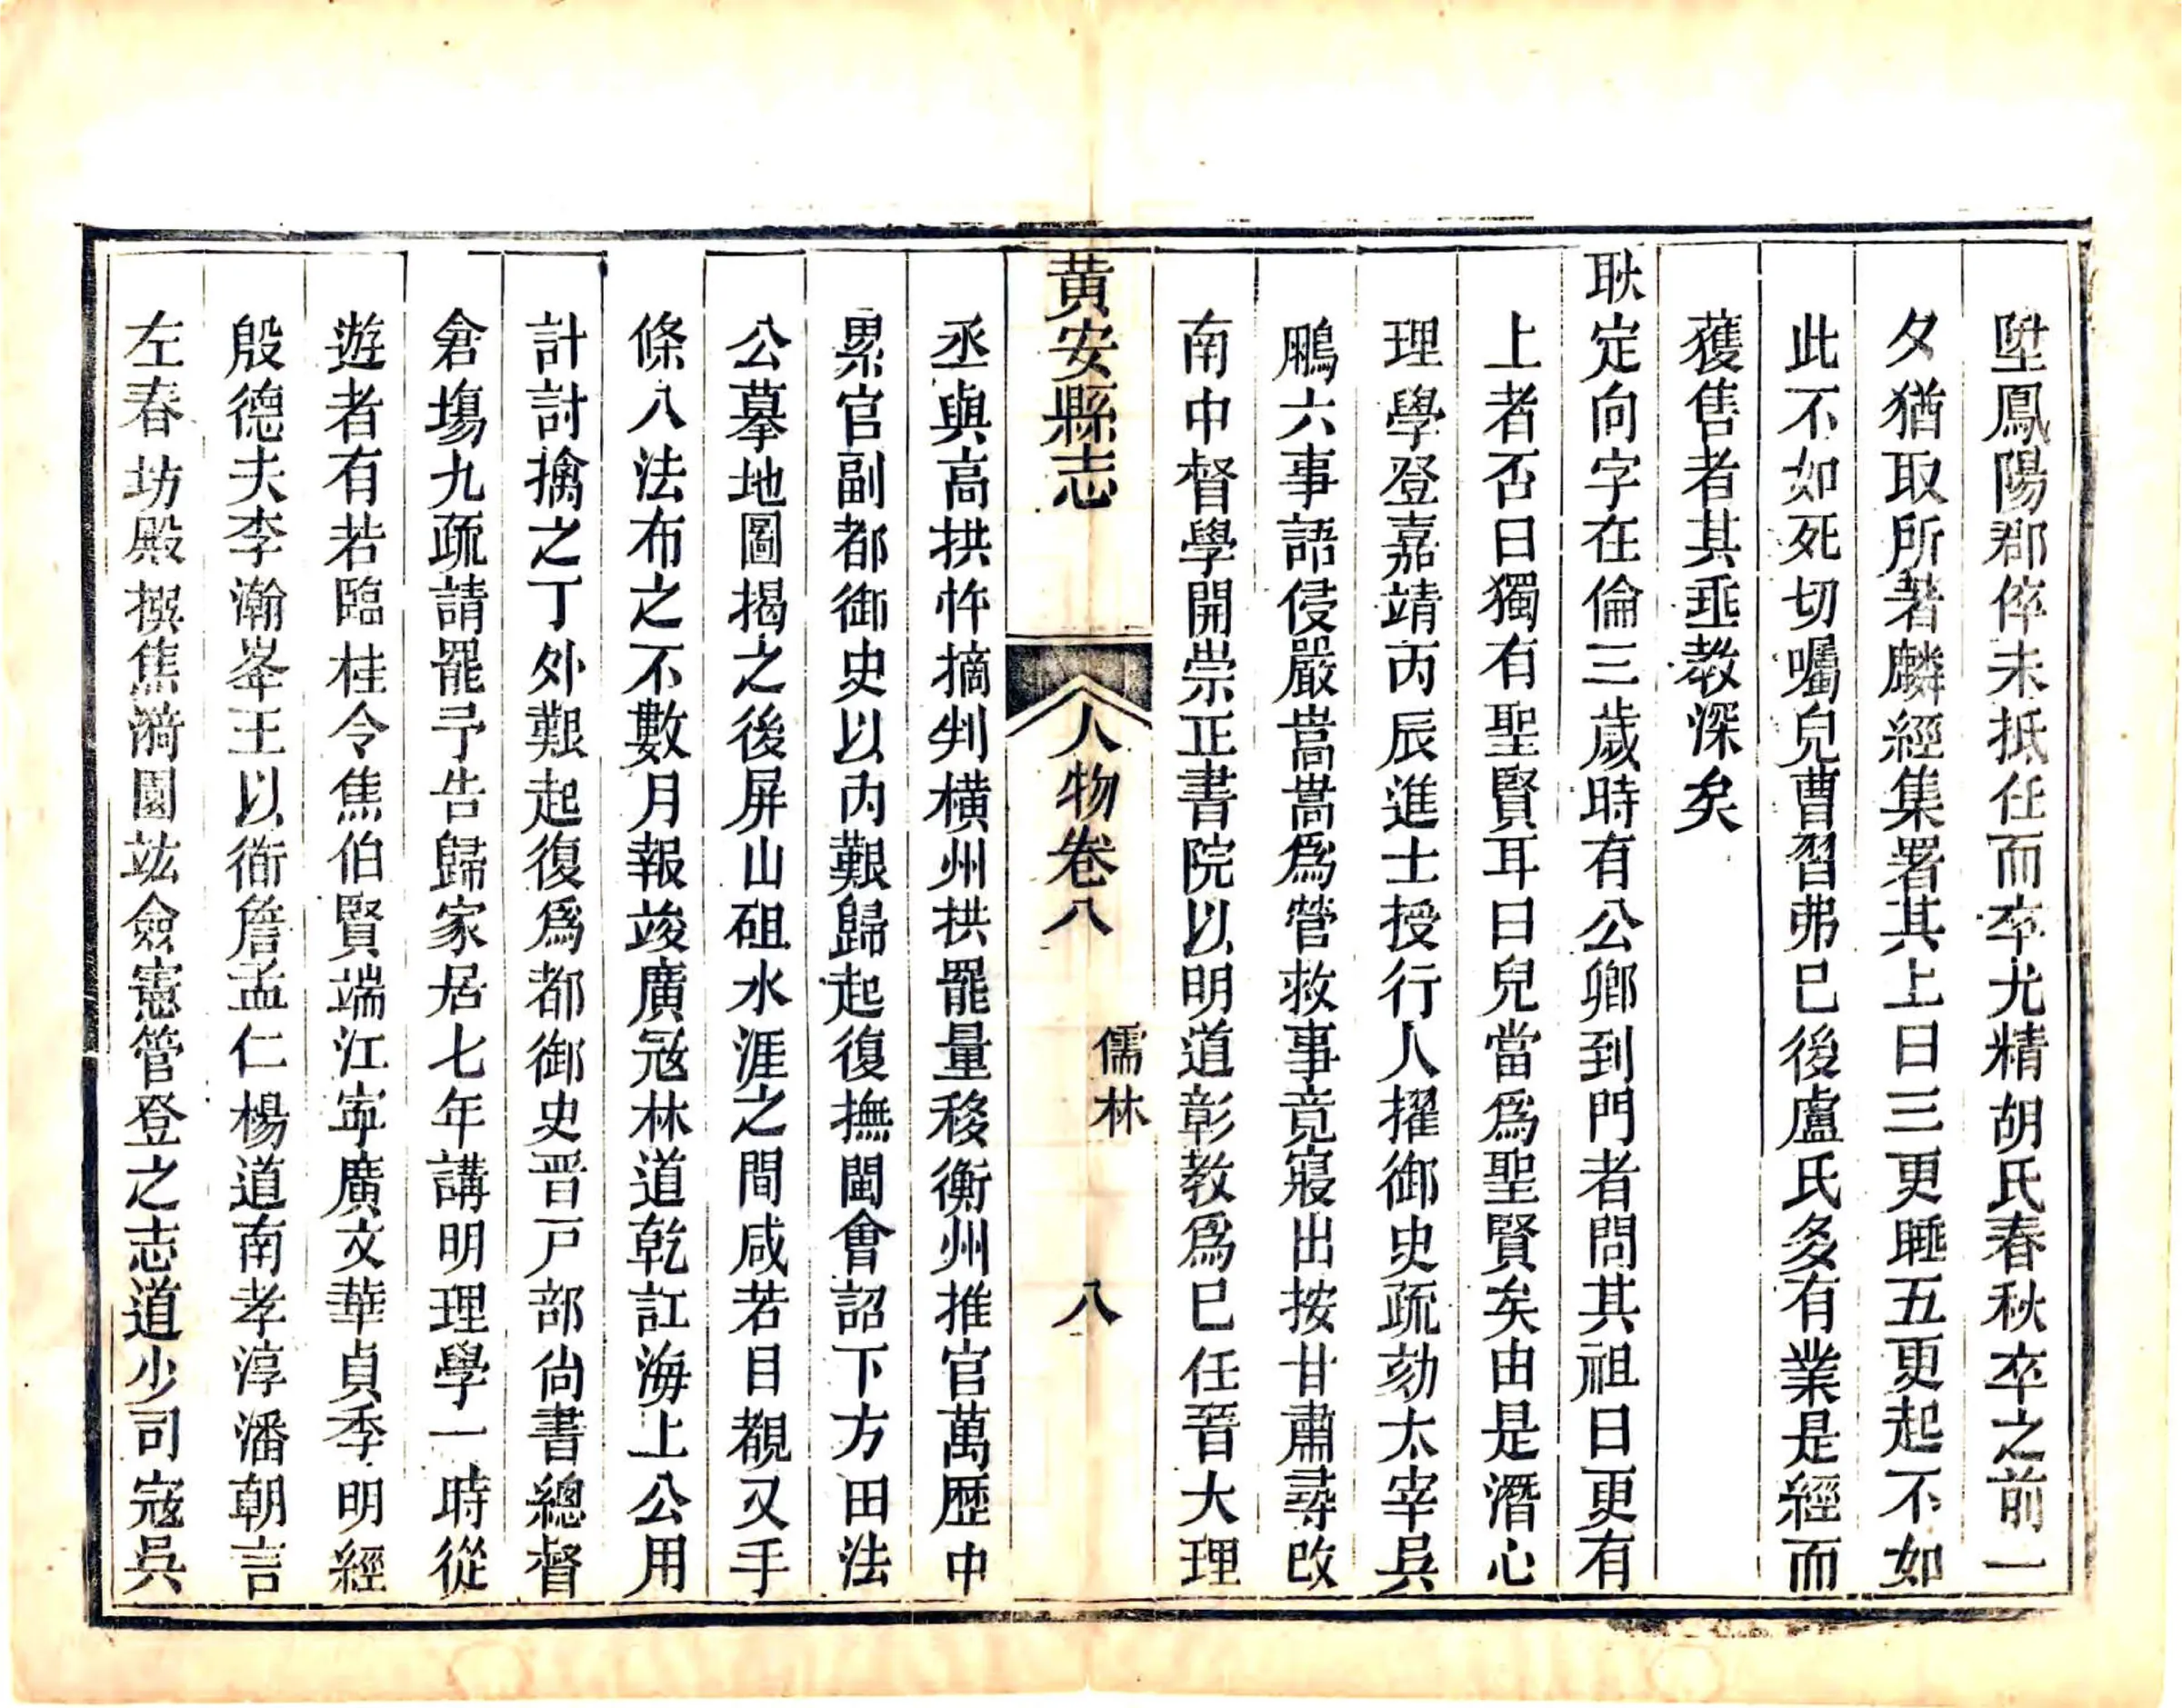 陞鳳陽郡倅未抵任而卒尤精胡氏春秋卒之前一
夕猶取所著麟經集署其上曰三更睡五更起不如
此不如死切囑兒曹習弗巳後盧氏多有業是經而
獲售者其垂教深矣
耿定向字在倫三歲時有公卿到門者問其祖曰更有
上者否曰獨有聖賢耳曰兒當爲聖賢矣由是潛心
理學登嘉靖丙辰進士授行人擢御史疏劾太宰吳
鵬六事語侵嚴嵩嵩爲營救事竟寢出按甘肅尋改
南中督學開崇正書院以明道彰教爲巳任晉大理
黃安縣志
人物卷八
儒林
八
丞與高拱忤摘判橫州拱罷量移衡州推官萬歷中
累官副都御史以內艱歸起復撫閩會詔下方田法
公摹地圖揭之後屏山砠水涯之間咸若目覩又手
條八法布之不數月報竣廣宼林道乾訌海上公用
計討擒之丁外艱起復爲都御史晋戸部尙書總督
倉塲九疏請罷予告歸家居七年講明理學一時從
遊者有若臨桂令焦伯賢端江寧廣文華貞季明經
殷德夫李瀚峯王以衜詹孟仁楊道南孝淳潘朝言
左春坊殿撰焦漪園竑僉憲管登之志道少司宼吳